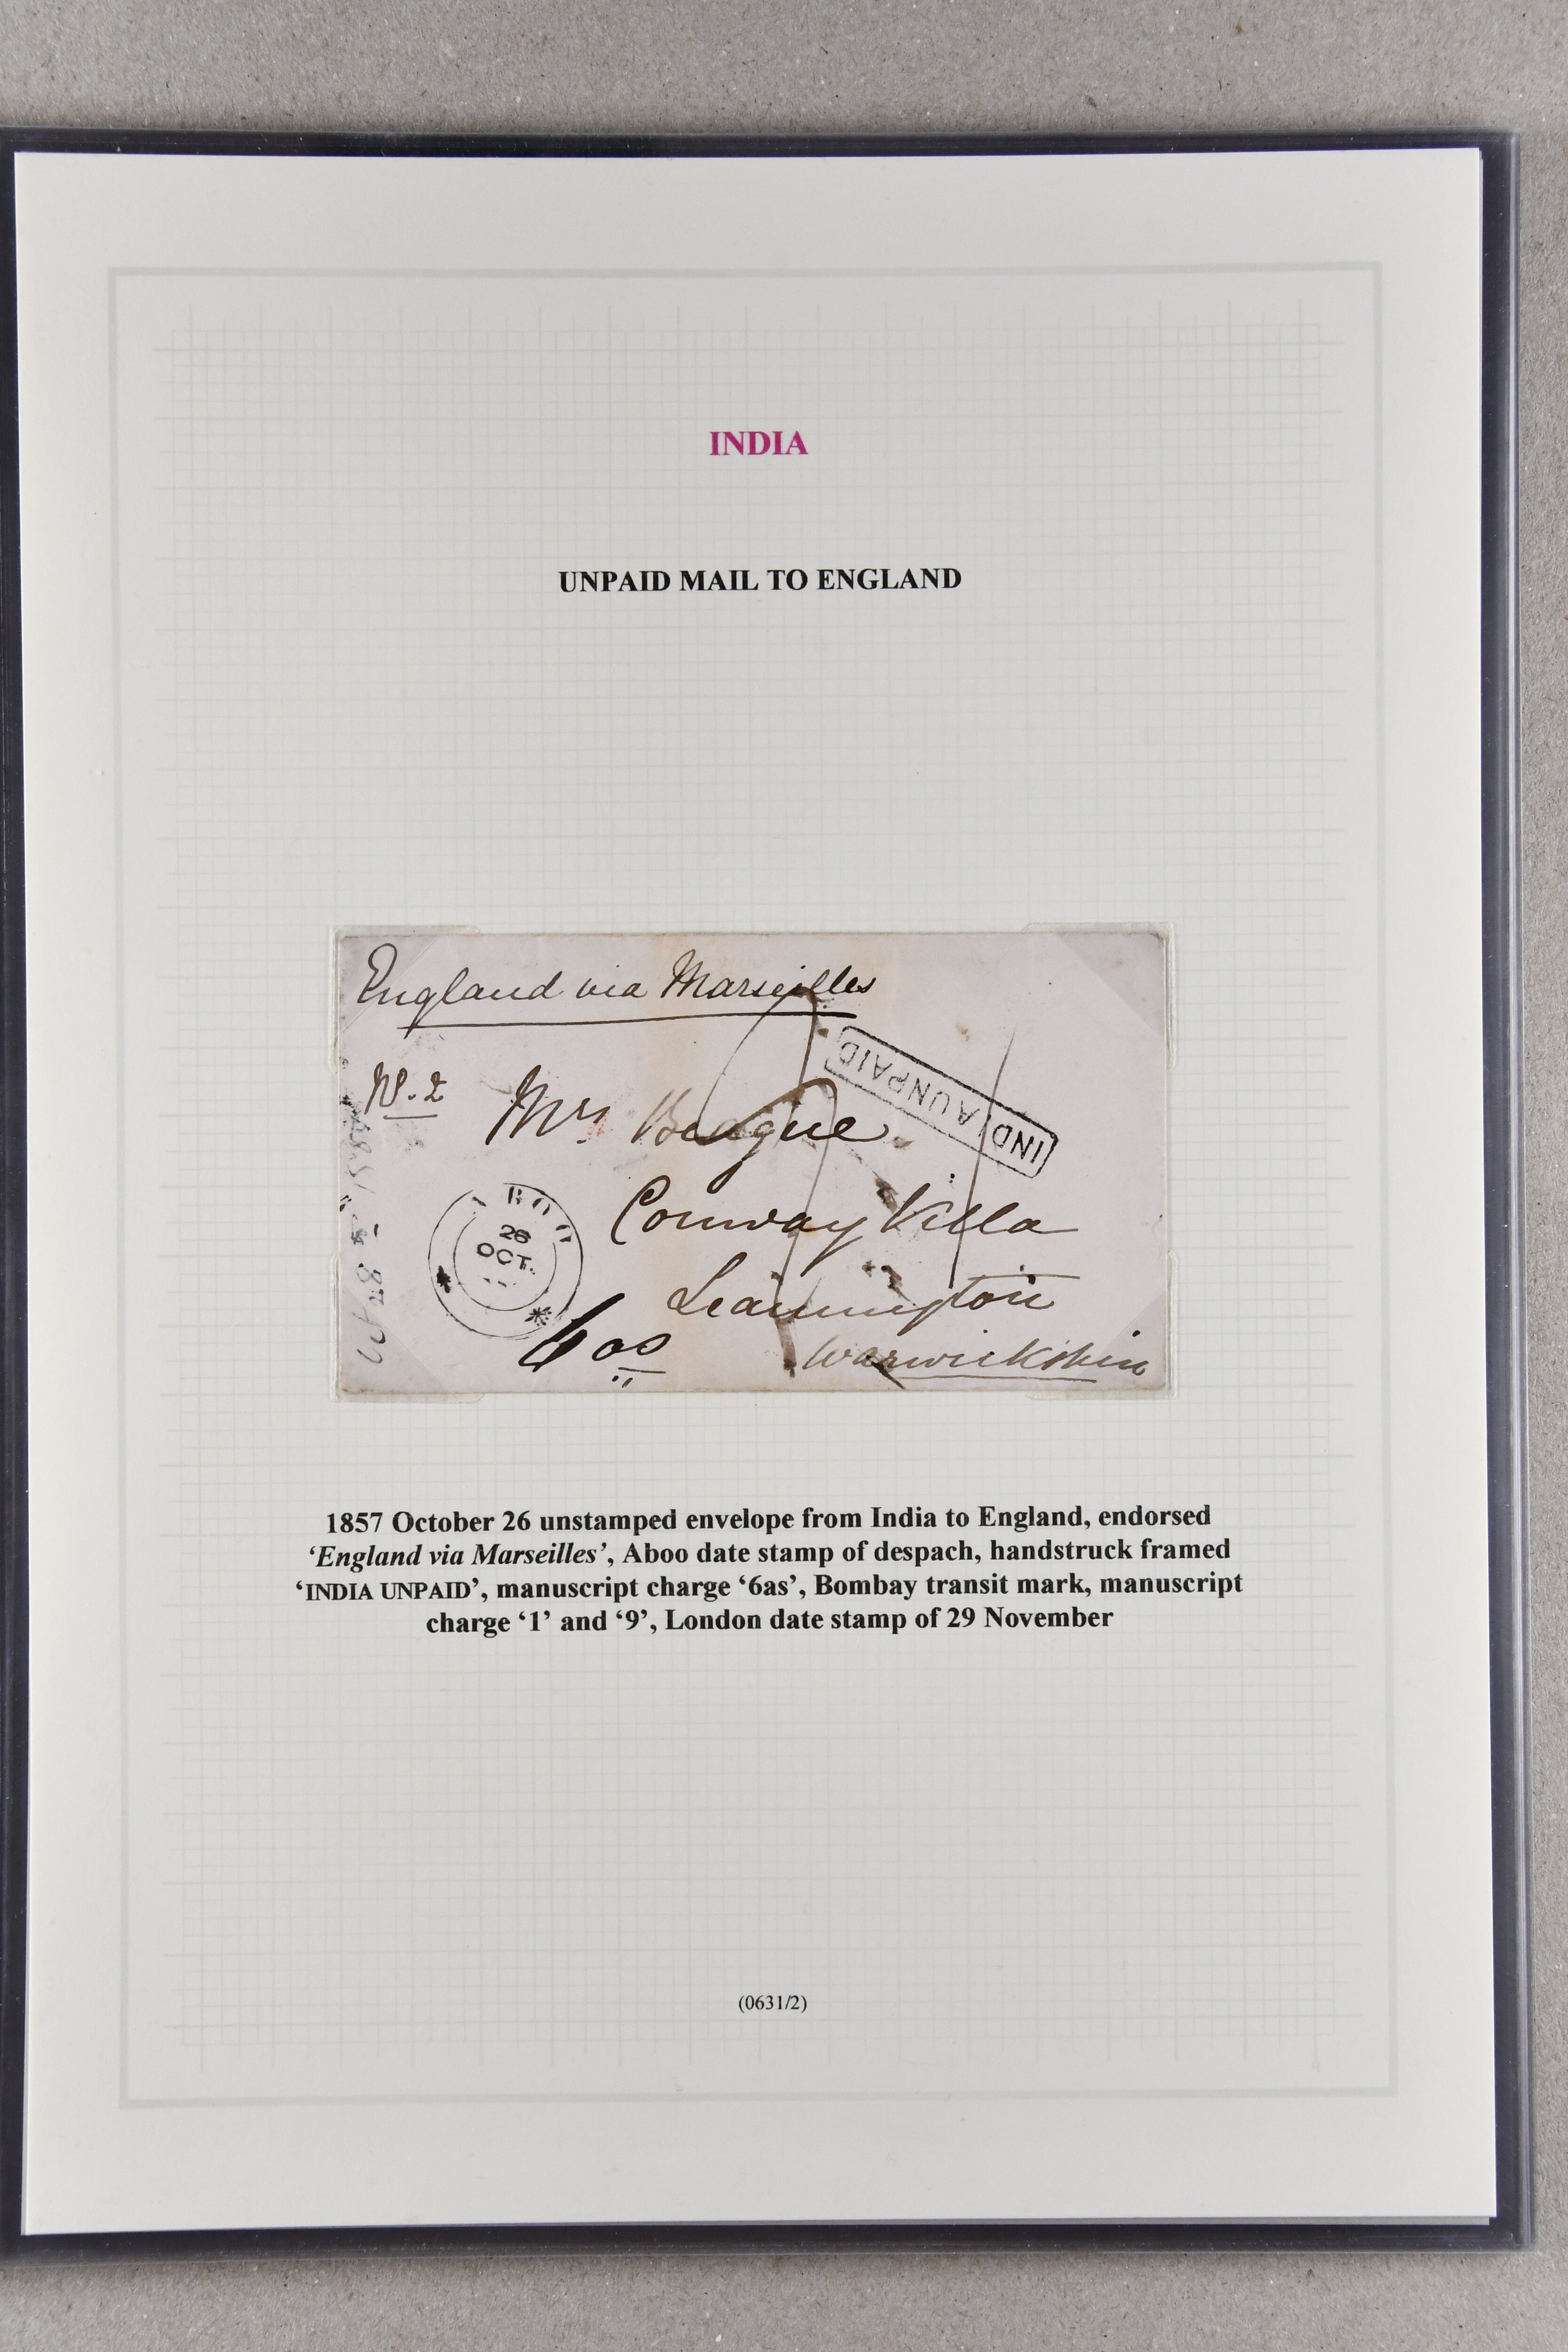 INDIA
UNPAID MAIL TO ENGLAND
England via Marseilles
INDIA UNPAID
No. 2
Mrs
Conway Villa
Leamington
Warwickshire
ABOO
26
OCT.
6 as
1857 October 26 unstamped envelope from India to England, endorsed
‘England via Marseilles’, Aboo date stamp of despach, handstruck framed
‘INDIA UNPAID’, manuscript charge ‘6as’, Bombay transit mark, manuscript
charge ‘1’ and ‘9’, London date stamp of 29 November
(0631/2)